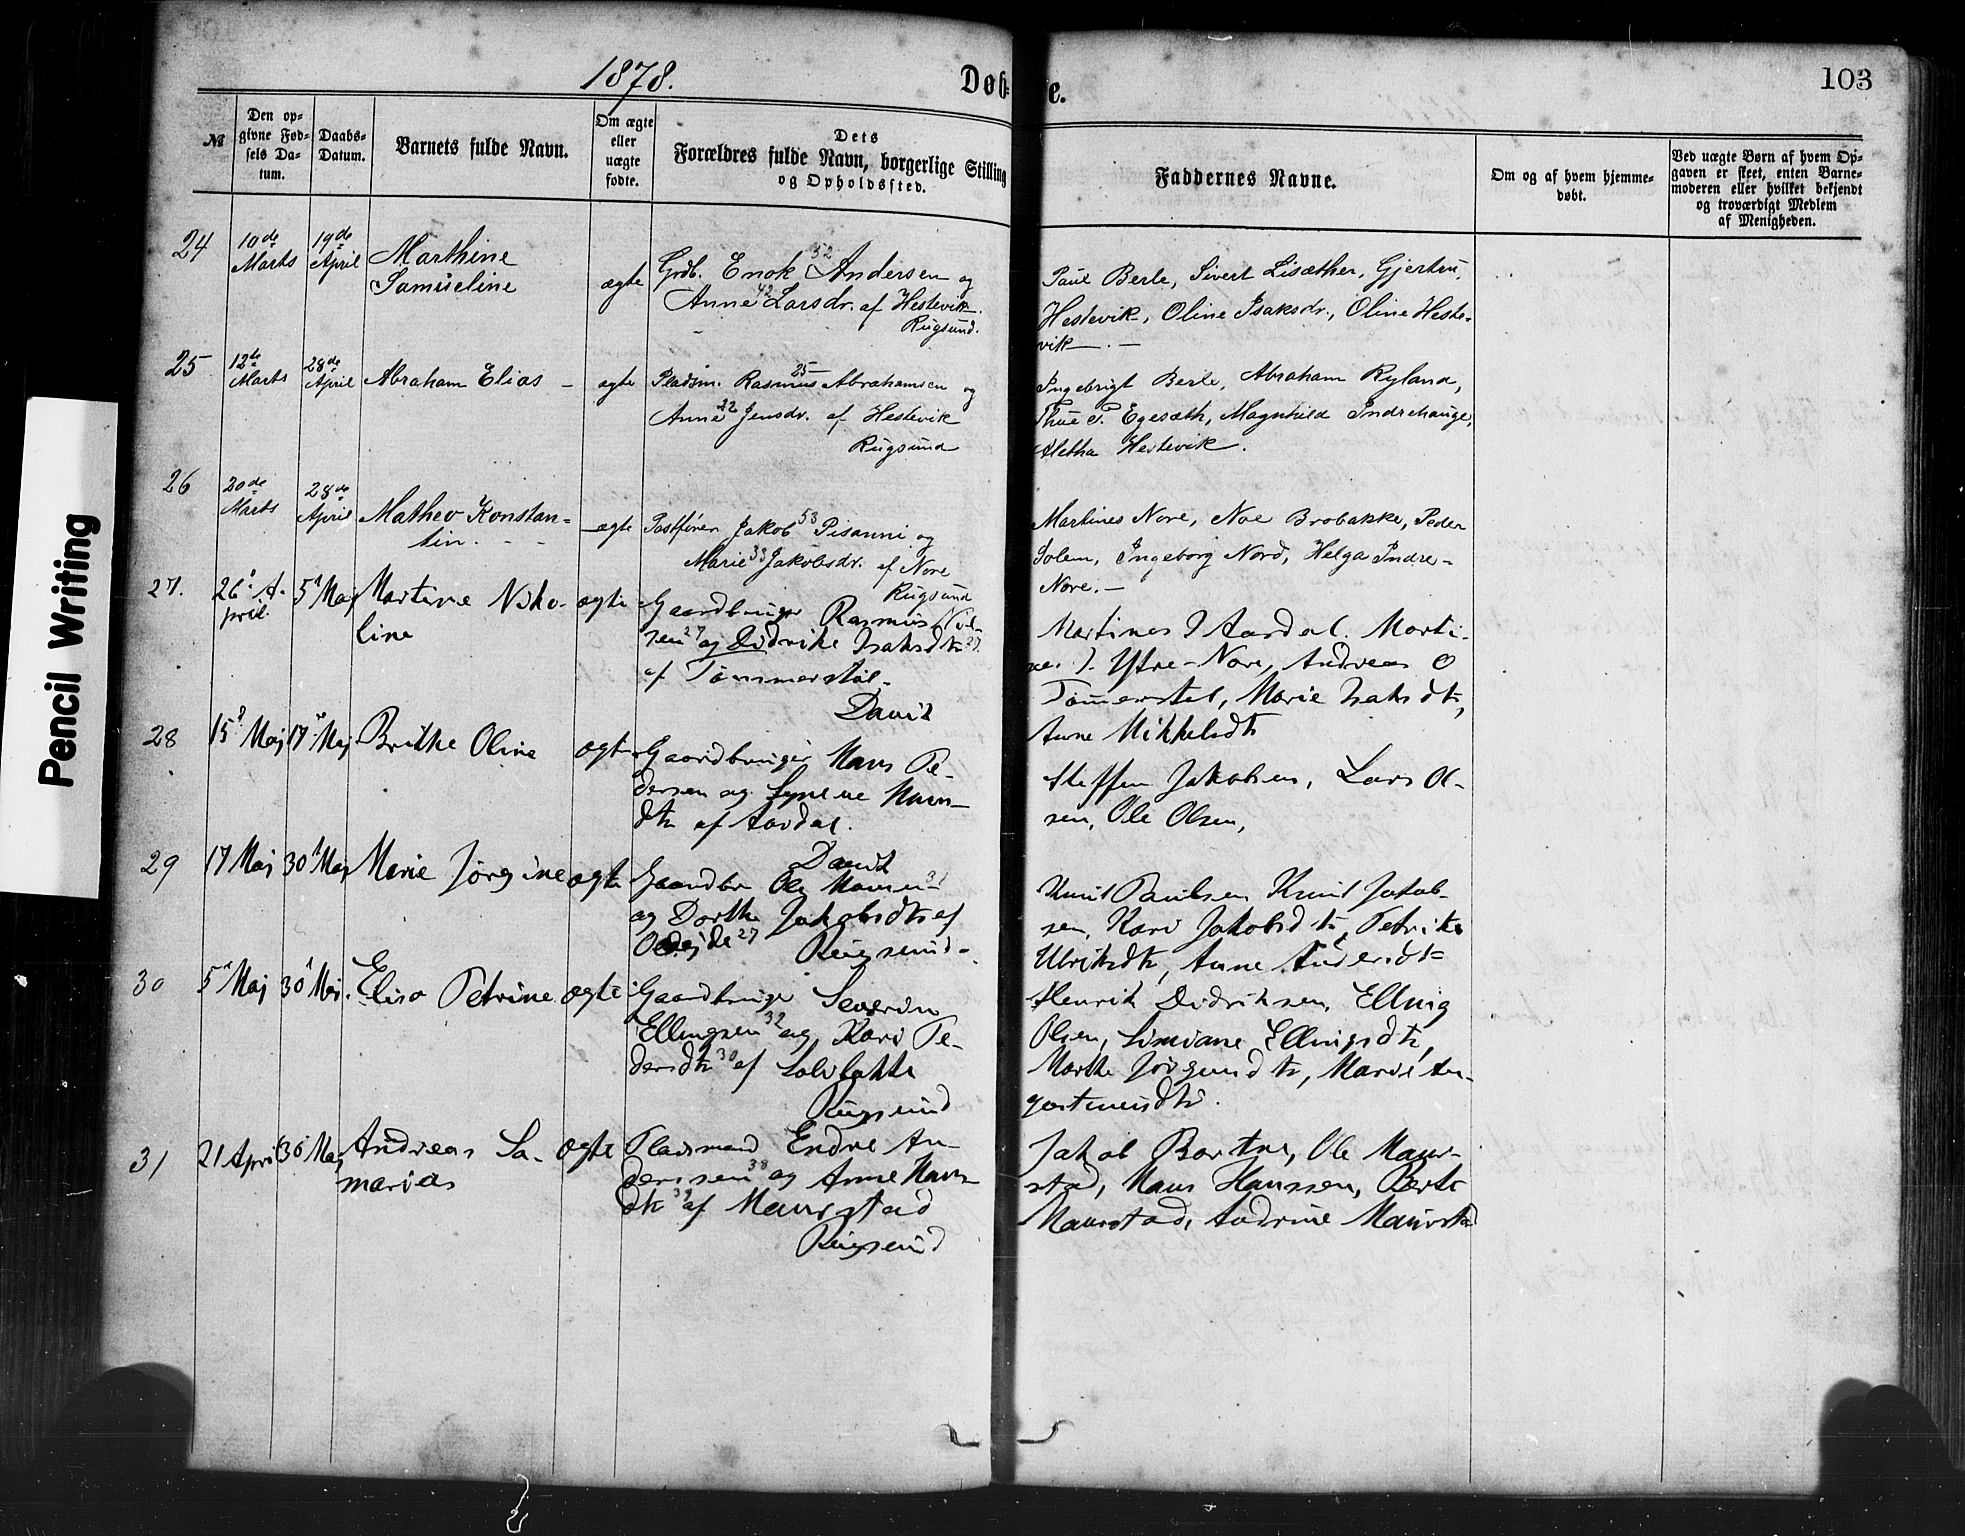 1878.
Døb-
te.
103
№
Den op-
givne Fød-
sels Da-
tum.
Daabs-
Datum.
Barnets fulde Navn.
Om ægte
eller
uægte
fødte.
Dets
Forældres fulde Navn, borgerlige Stilling
og Opholdssted.
Faddernes Navne.
Om og af hvem hjemme-
døbt.
Ved uægte Børn af hvem Op-
gaven er skeet, enten Barne-
moderen eller hvilket bekjendt
og troværdigt Medlem
af Menigheden.
24
10de
Marts
19de
April
Marthine
Samueline
ægte
Grdb. Enok 52 Andersen og
Anne 42 Larsdr. af Hestevik.
Rugsund.
Paul Berle, Sivert Lisæther, Gjertru
Hestevik, Oline Isaksdr., Oline Heste-
vik. —
25
12te
Marts
28de
April
Abraham Elias —
ægte
Pladsm. Rasmus 25 Abrahamsen og
Anne 22 Jensdr. af Hestevik
Rugsund
Ingebrigt Berle, Abraham Ryland,
Thue P. Egesæth, Magnhild Indrehauge,
Aletha Hestevik.
26
20de
Marts
28de
April
Matheo Konstan-
tin. - -
ægte
Postfører Jakob 53 Pisanni og
Marie 33 Jakobsdr. af Nore
Rugsund
Martines Nore, Noe Brobakke, Peder
Solem, Ingeborg Nord, Helga Indre-
Nore. —
27.
26 A-
pril
5 Maj
Martine Niko-
line
ægte
Gaardbruger Rasmus Niel-
sen 27 og Didrike Isaksdtr
af Tømmerstøl.
Davik
Martines I Aardal. Marti-
Ytre-Nore, Andreas O
Tømerstøl, Marie Isaksdtr,
Anne Mikkelsdtr
28
15 Maj
17 Maj
Brithe Oline
ægte
Gaardbruger Mons Pe-
dersen og Synneve Mons-
dtr af Aardal.
Davik
Steffen Jakobsen, Lars Ol-
sen, Ole Olsen,
29
17 Maj
30 Maj
Marie Jørgine
ægte
Gaardbr Ole Monsen 31
og Dorthe Jakobsdtr af
27
Rugsund.
Knut Paulsen Knut Jakob-
sen, Kari Jakobsdtr, Petrike
Ulriksdtr, Anne Andersdtr
30
5 Maj
30 Maj.
Elisa Petrine
ægte
Gaardbruger Severin
Ellingsen 32 og Kari Pe-
dersdtr 30 af
Rugsund
Henrik Didriksen, Elling
Olsen, Simiane Ellingsdtr,
Marthe Jørgensdtr, Marie Au-
gustinusdtr.
31
21 April
30 Maj
Andreas Sa-
marias
ægte
Pladsmand Endre An-
derssen 38 og Anne Mons-
dtr 39 af Maurstad
Rugsund
Jakob Bortne, Ole Maur-
stad, Mons Hanssen, Berte
Maurstad, Andrine Maurstad
Pencil Writing